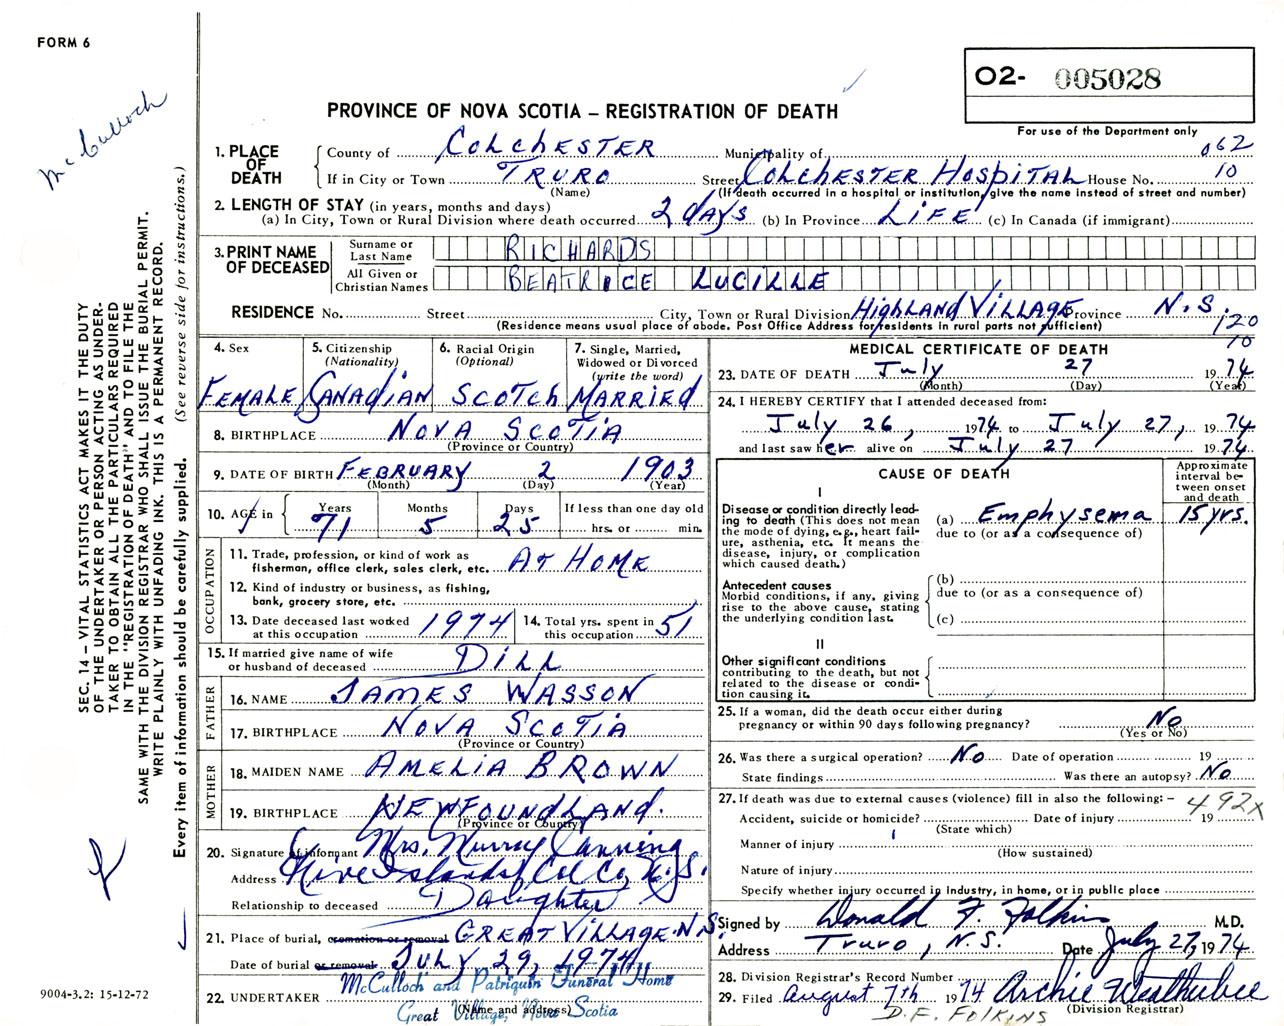 FORM 6
McCulloch
O2- 005028
For use of the Department only
PROVINCE OF NOVA SCOTIA – REGISTRATION OF DEATH
1. PLACE OF DEATH
County of COLCHESTER Municipality of 062
If in City or Town TRURO Street COLCHESTER HOSPITAL House No. 10
(Name) (If death occurred in a hospital or institution, give the name instead of street and number)
2. LENGTH OF STAY (in years, months and days)
(a) In City, Town or Rural Division where death occurred 2 days (b) In Province LIFE (c) In Canada (if immigrant)
3. PRINT NAME OF DECEASED
Surname or Last Name RICHARDS
All Given or Christian Names BEATRICE LUCILLE
RESIDENCE No. Street City, Town or Rural Division HIGHLAND VILLAGE Province N.S.
(Residence means usual place of abode. Post Office Address for residents in rural parts not sufficient) 120
10
4. Sex FEMALE
5. Citizenship (Nationality) CANADIAN
6. Racial Origin (Optional) SCOTCH
7. Single, Married, Widowed or Divorced (write the word) MARRIED
8. BIRTHPLACE NOVA SCOTIA
(Province or Country)
9. DATE OF BIRTH FEBRUARY 2 1903
(Month) (Day) (Year)
10. AGE in Years 71 Months 5 Days 25 If less than one day old hrs. or min.
OCCUPATION
11. Trade, profession, or kind of work as fisherman, office clerk, sales clerk, etc. AT HOME
12. Kind of industry or business, as fishing, bank, grocery store, etc.
13. Date deceased last worked at this occupation 1974
14. Total yrs. spent in this occupation 51
15. If married give name of wife or husband of deceased DILL
FATHER
16. NAME JAMES WASSON
17. BIRTHPLACE NOVA SCOTIA
(Province or Country)
MOTHER
18. MAIDEN NAME AMELIA BROWN
19. BIRTHPLACE NEWFOUNDLAND.
(Province or Country)
20. Signature of informant Mrs. Murray Canning
Address Five Islands, Col Co, N.S.
Relationship to deceased Daughter
21. Place of burial, cremation or removal GREAT VILLAGE N.S
Date of burial or removal JULY 29, 1974
22. UNDERTAKER McCulloch and Patriquin Funeral Home
(Name and address)
Great Village, Nova Scotia
MEDICAL CERTIFICATE OF DEATH
23. DATE OF DEATH July 27 1974
(Month) (Day) (Year)
24. I HEREBY CERTIFY that I attended deceased from:
July 26, 1974 to July 27, 1974
and last saw her alive on July 27 1974
CAUSE OF DEATH
Approximate interval between onset and death
I
Disease or condition directly leading to death (This does not mean the mode of dying, e.g., heart failure, asthenia, etc. It means the disease, injury, or complication which caused death.)
(a) Emphysema 15 yrs.
due to (or as a consequence of)
Antecedent causes
Morbid conditions, if any, giving rise to the above cause, stating the underlying condition last.
(b)
due to (or as a consequence of)
(c)
II
Other significant conditions contributing to the death, but not related to the disease or condition causing it.
25. If a woman, did the death occur either during pregnancy or within 90 days following pregnancy? No
(Yes or No)
26. Was there a surgical operation? No Date of operation 19
State findings Was there an autopsy? No
27. If death was due to external causes (violence) fill in also the following: – 492X
Accident, suicide or homicide? Date of injury 19
(State which)
Manner of injury
(How sustained)
Nature of injury
Specify whether injury occurred in Industry, in home, or in public place
Signed by Donald F. Folkins M.D.
Address Truro, N.S. Date July 27, 1974
28. Division Registrar's Record Number
29. Filed August 7th 1974 Archie Weatherbee
(Division Registrar)
D.F. FOLKINS
SEC. 14 – VITAL STATISTICS ACT MAKES IT THE DUTY
OF THE UNDERTAKER OR PERSON ACTING AS UNDER-
TAKER TO OBTAIN ALL THE PARTICULARS REQUIRED
IN THE "REGISTRATION OF DEATH" AND TO FILE THE
SAME WITH THE DIVISION REGISTRAR WHO SHALL ISSUE THE BURIAL PERMIT.
WRITE PLAINLY WITH UNFADING INK. THIS IS A PERMANENT RECORD.
Every item of information should be carefully supplied. (See reverse side for instructions.)
9004-3.2: 15-12-72